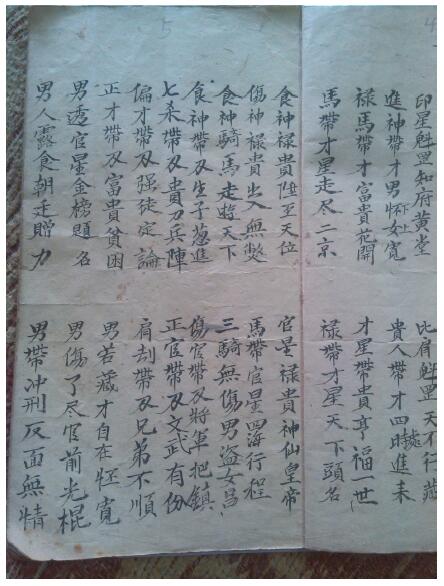 4
印星魁罡知府黄堂
比肩魁罡天不行藏
進神帶才男怀女寬
貴人帶才四時進来
禄馬帶才富貴花開
才星帶貴亨福一世
馬帶才星走尽二京
禄帶才星天下頭名
5
食神禄貴陞至天位
官星禄貴神仙皇帝
傷神禄貴出入無獘
馬帶官星四海行程
食神騎馬走遊天下
三騎無傷男盗女昌
食神帶刃生子忽進
傷官帶刃將軍把鎮
七杀帶刃貴刀兵陣
正官帶刃文武有份
偏才帶刃强徒定論
肩刦帶刃兄弟不順
正才帶刃富貴貧困
男若藏才自在怀寬
男透官星金榜題名
男傷了尽官前光棍
男人露食朝廷贈力
男帶冲刑反面無情